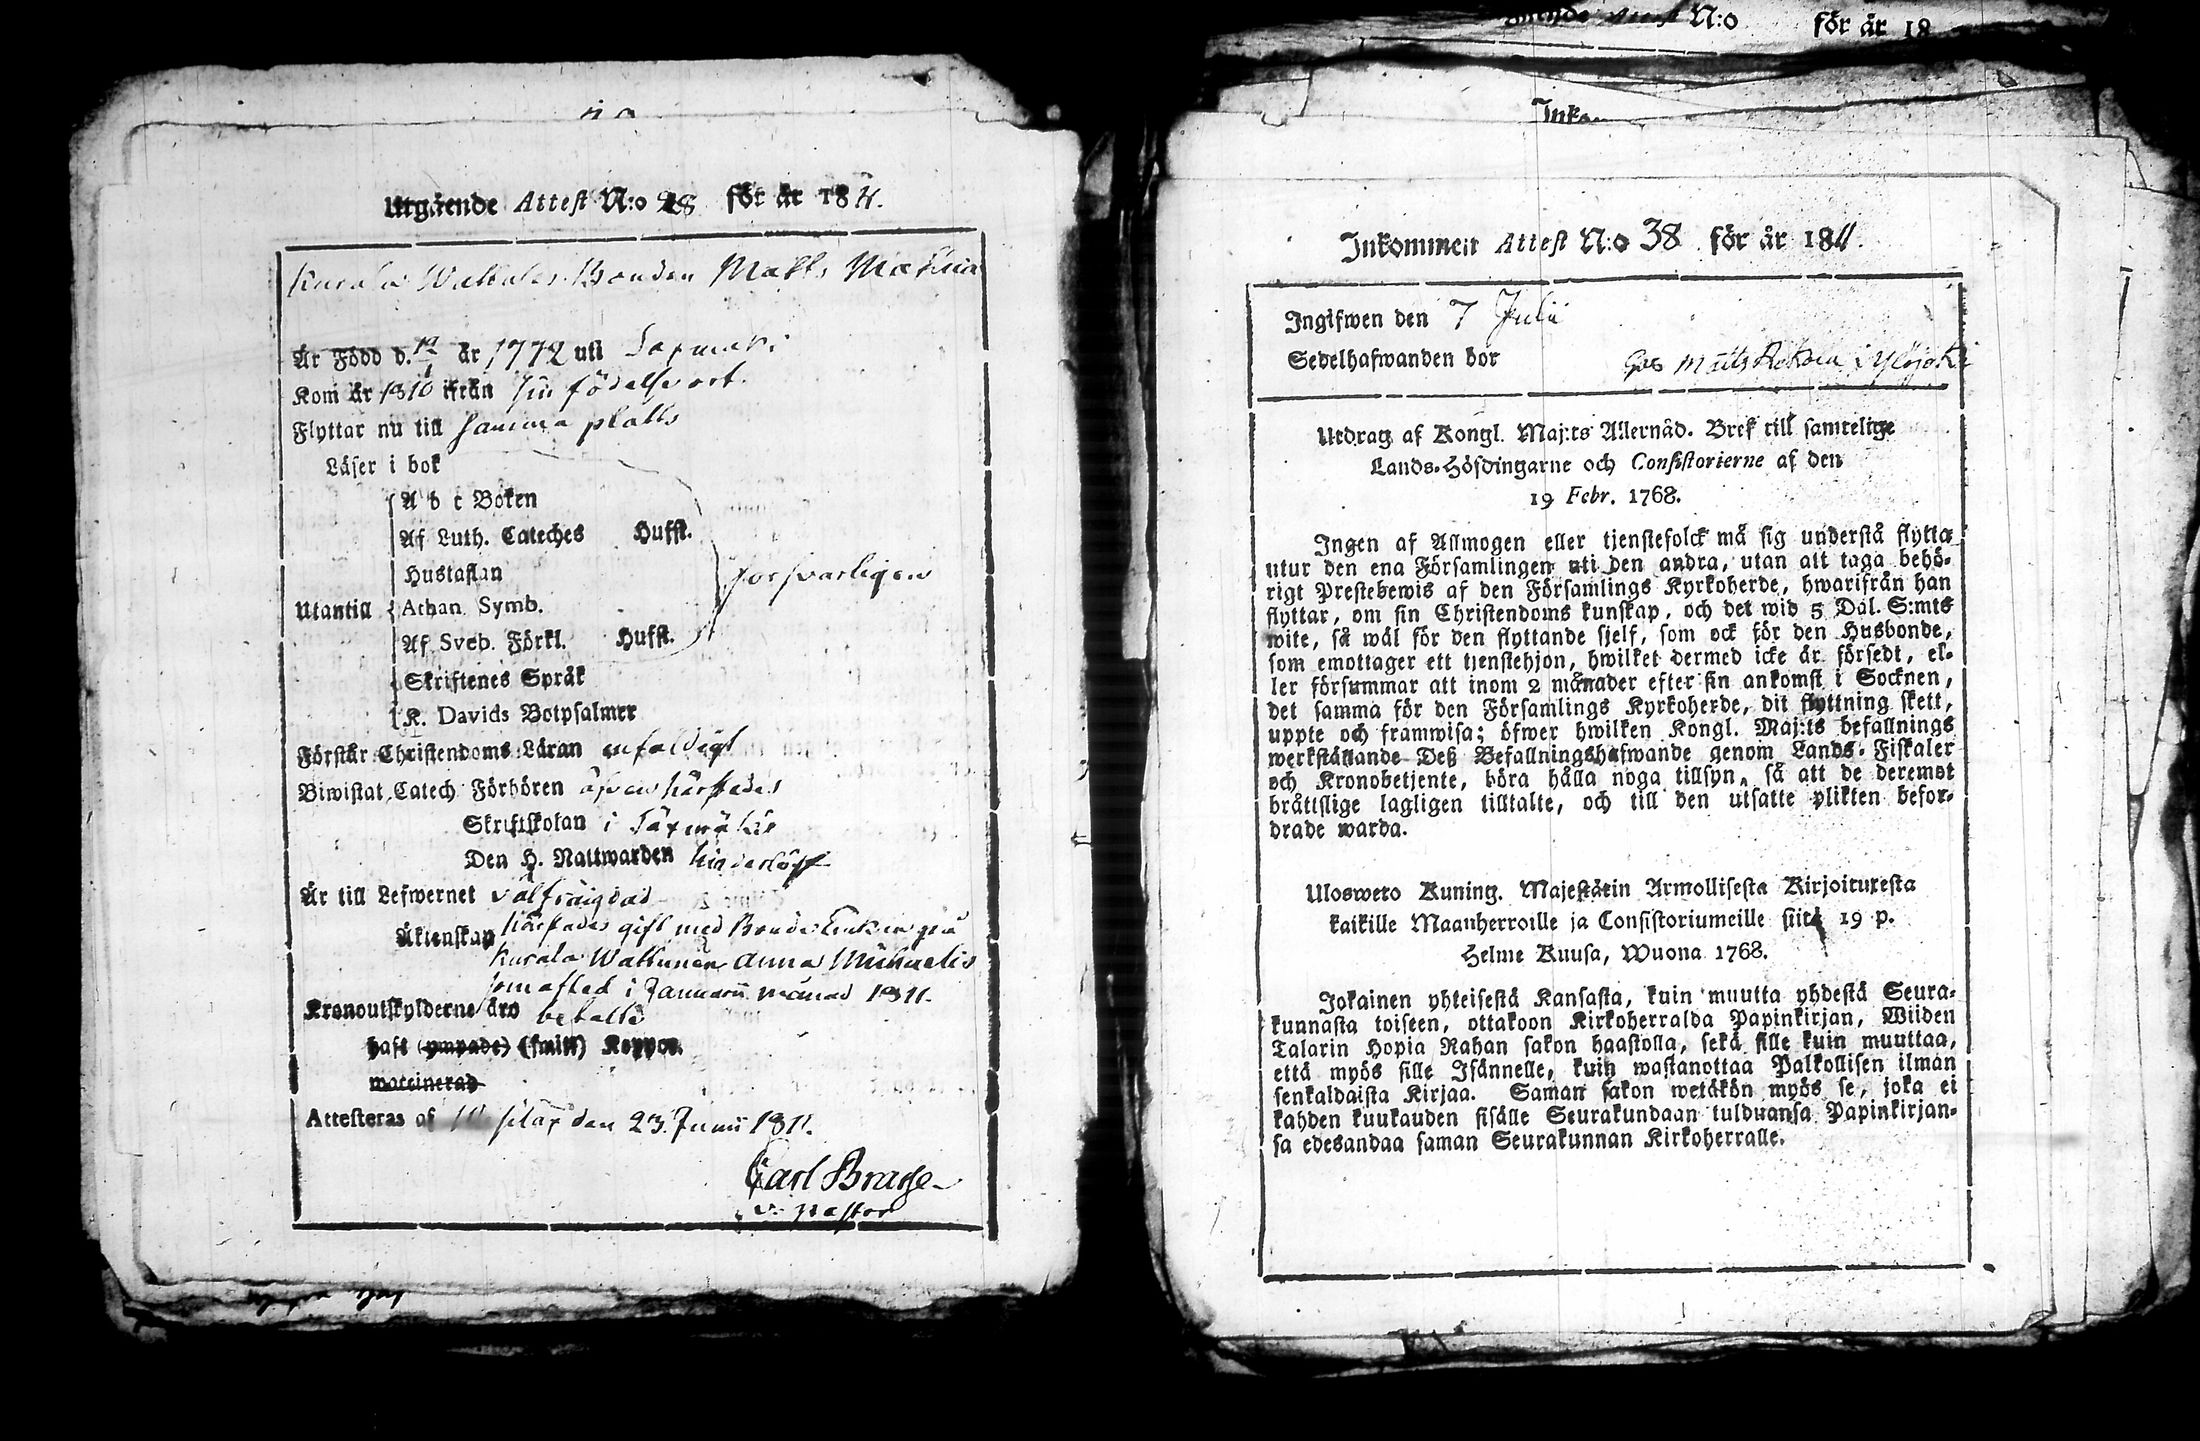 Utgående Attest N:o 28 för år 1811.
Kurala Wattulas Bonden Matts Mattsson
Är Född d. år 1772 uti Saxmäki
Kom år 1810 ifrån sin födelseort.
Flyttar nu till samma platts
Läser i bok
A b c Boken
Af Luth. Cateches Hufst.
Hustaflan
försvarligen
Utantill Athan. Symb.
Af Sveb. Förkl. Hufst.
Skriftenes Språk
K. Davids Botpsalmer
Förstår Christendoms Läran enfaldigt
Biwistat Catech. Förhören äfven härstädes
Skriftskolan i Saxmäki
Den H. Nattwarden
Är till Lefwernet välfrägdad
Äktenskap härstädes gift med Bonde Enkan på
Kurala Wattunen Anna Michaelis
som afled i Januarii månad 1811.
Kronoutskylderne äro betalte
haft (ympade) (smitt) Koppor.
waccinerad
Attesteras af den 23. Junii 1811.
Carl Brage
v. pastor
ående Attest N:o för år 18
Inko
Inkommen Attest N:o 38 för år 1811.
Ingifwen den 7 Julii
Sedelhafwanden bor hos Matts i Ylöjoki
Utdrag af Kongl. Maj:ts Allernåd. Bref till samtelige
Lands-Höfdingarne och Consistorierne af den
19 Febr. 1768.
Ingen af Allmogen eller tjenstefolck må sig understå flytta
utur den ena Församlingen uti den andra, utan att taga behö-
rigt Prestebewis af den Församlings Kyrkoherde, hwarifrån han
flyttar, om sin Christendoms kunskap, och det wid 5 Dal. S:mts
wite, så wäl för den flyttande sjelf, som ock för den Husbonde,
som emottager ett tjenstehjon, hwilket dermed icke är försedt, el-
ler försummar att inom 2 månader efter sin ankomst i Socknen,
det samma för den Församlings Kyrkoherde, dit flyttning skett,
uppte och framwisa; öfwer hwilken Kongl. Maj:ts befallnings
werkställande Deß Befallningshafwande genom Lands-Fiskaler
och Kronobetjente, böra hålla noga tillsyn, så att de deremot
bråttslige lagligen tilltalte, och till den utsatte plikten befor-
drade warda.
Ulosweto Kuning. Majestätin Armollisesta Kirjoituxesta
kaikille Maanherroille ja Consistoriumeille siitä 19 p.
Helme Kuusa, Wuona 1768.
Jokainen yhteisestä Kansasta, kuin muutta yhdestä Seura-
kunnasta toiseen, ottakoon Kirkoherralda Papinkirjan, Wiiden
Talarin Hopia Rahan sakon haastolla, sekä sille kuin muuttaa,
että myös sille Isännelle, kuin wastanottaa Palkollisen ilman
senkaldaista Kirjaa. Saman sakon wetäkön myös se, joka ei
kahden kuukauden sisälle Seurakundaan tulduansa Papinkirjan-
sa edesandaa saman Seurakunnan Kirkoherralle.